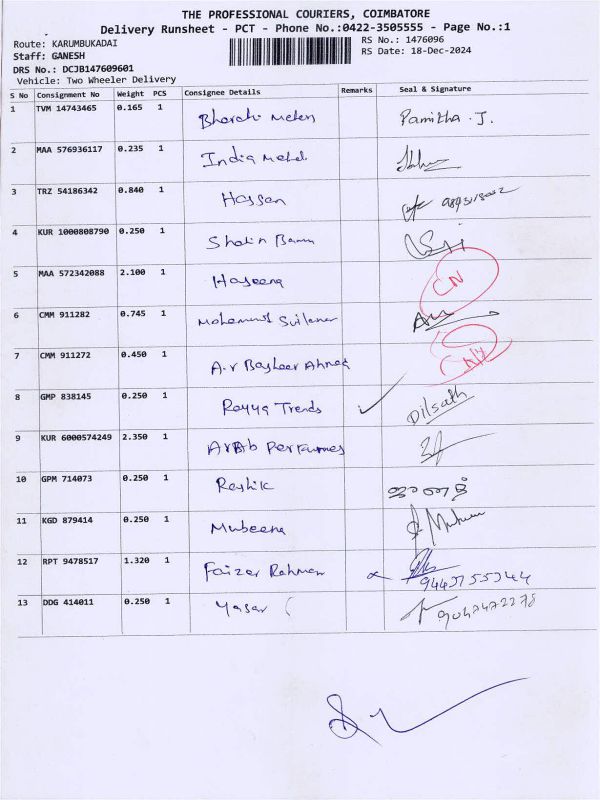 THE PROFESSIONAL COURIERS, COIMBATORE
Delivery Runsheet - PCT - Phone No.:0422-3505555 - Page No.:1
Route: KARUMBUKADAI RS No.: 1476096
Staff: GANESH RS Date: 18-Dec-2024
DRS No.: DCJB147609601
Vehicle: Two Wheeler Delivery
S No Consignment No Weight PCS Consignee Details Remarks Seal & Signature
1 TVM 14743465 0.165 1 Bharathi Pamitha . J.
2 MAA 576936117 0.235 1 India
3 TRZ 54186342 0.840 1 Hassan
4 KUR 1000808790 0.250 1
5 MAA 572342088 2.100 1 Haseena CN
6 CMM 911282 0.745 1
7 CMM 911272 0.450 1 A.r Basheer Ahmed
8 GMP 838145 0.250 1 Rayya Trends Dilsath
9 KUR 6000574249 2.350 1 Perfumes
10 GPM 714073 0.250 1
11 KGD 879414 0.250 1 Mubeena
12 RPT 9478517 1.320 1 Faizer Rahman
13 DDG 414011 0.250 1 Yasar